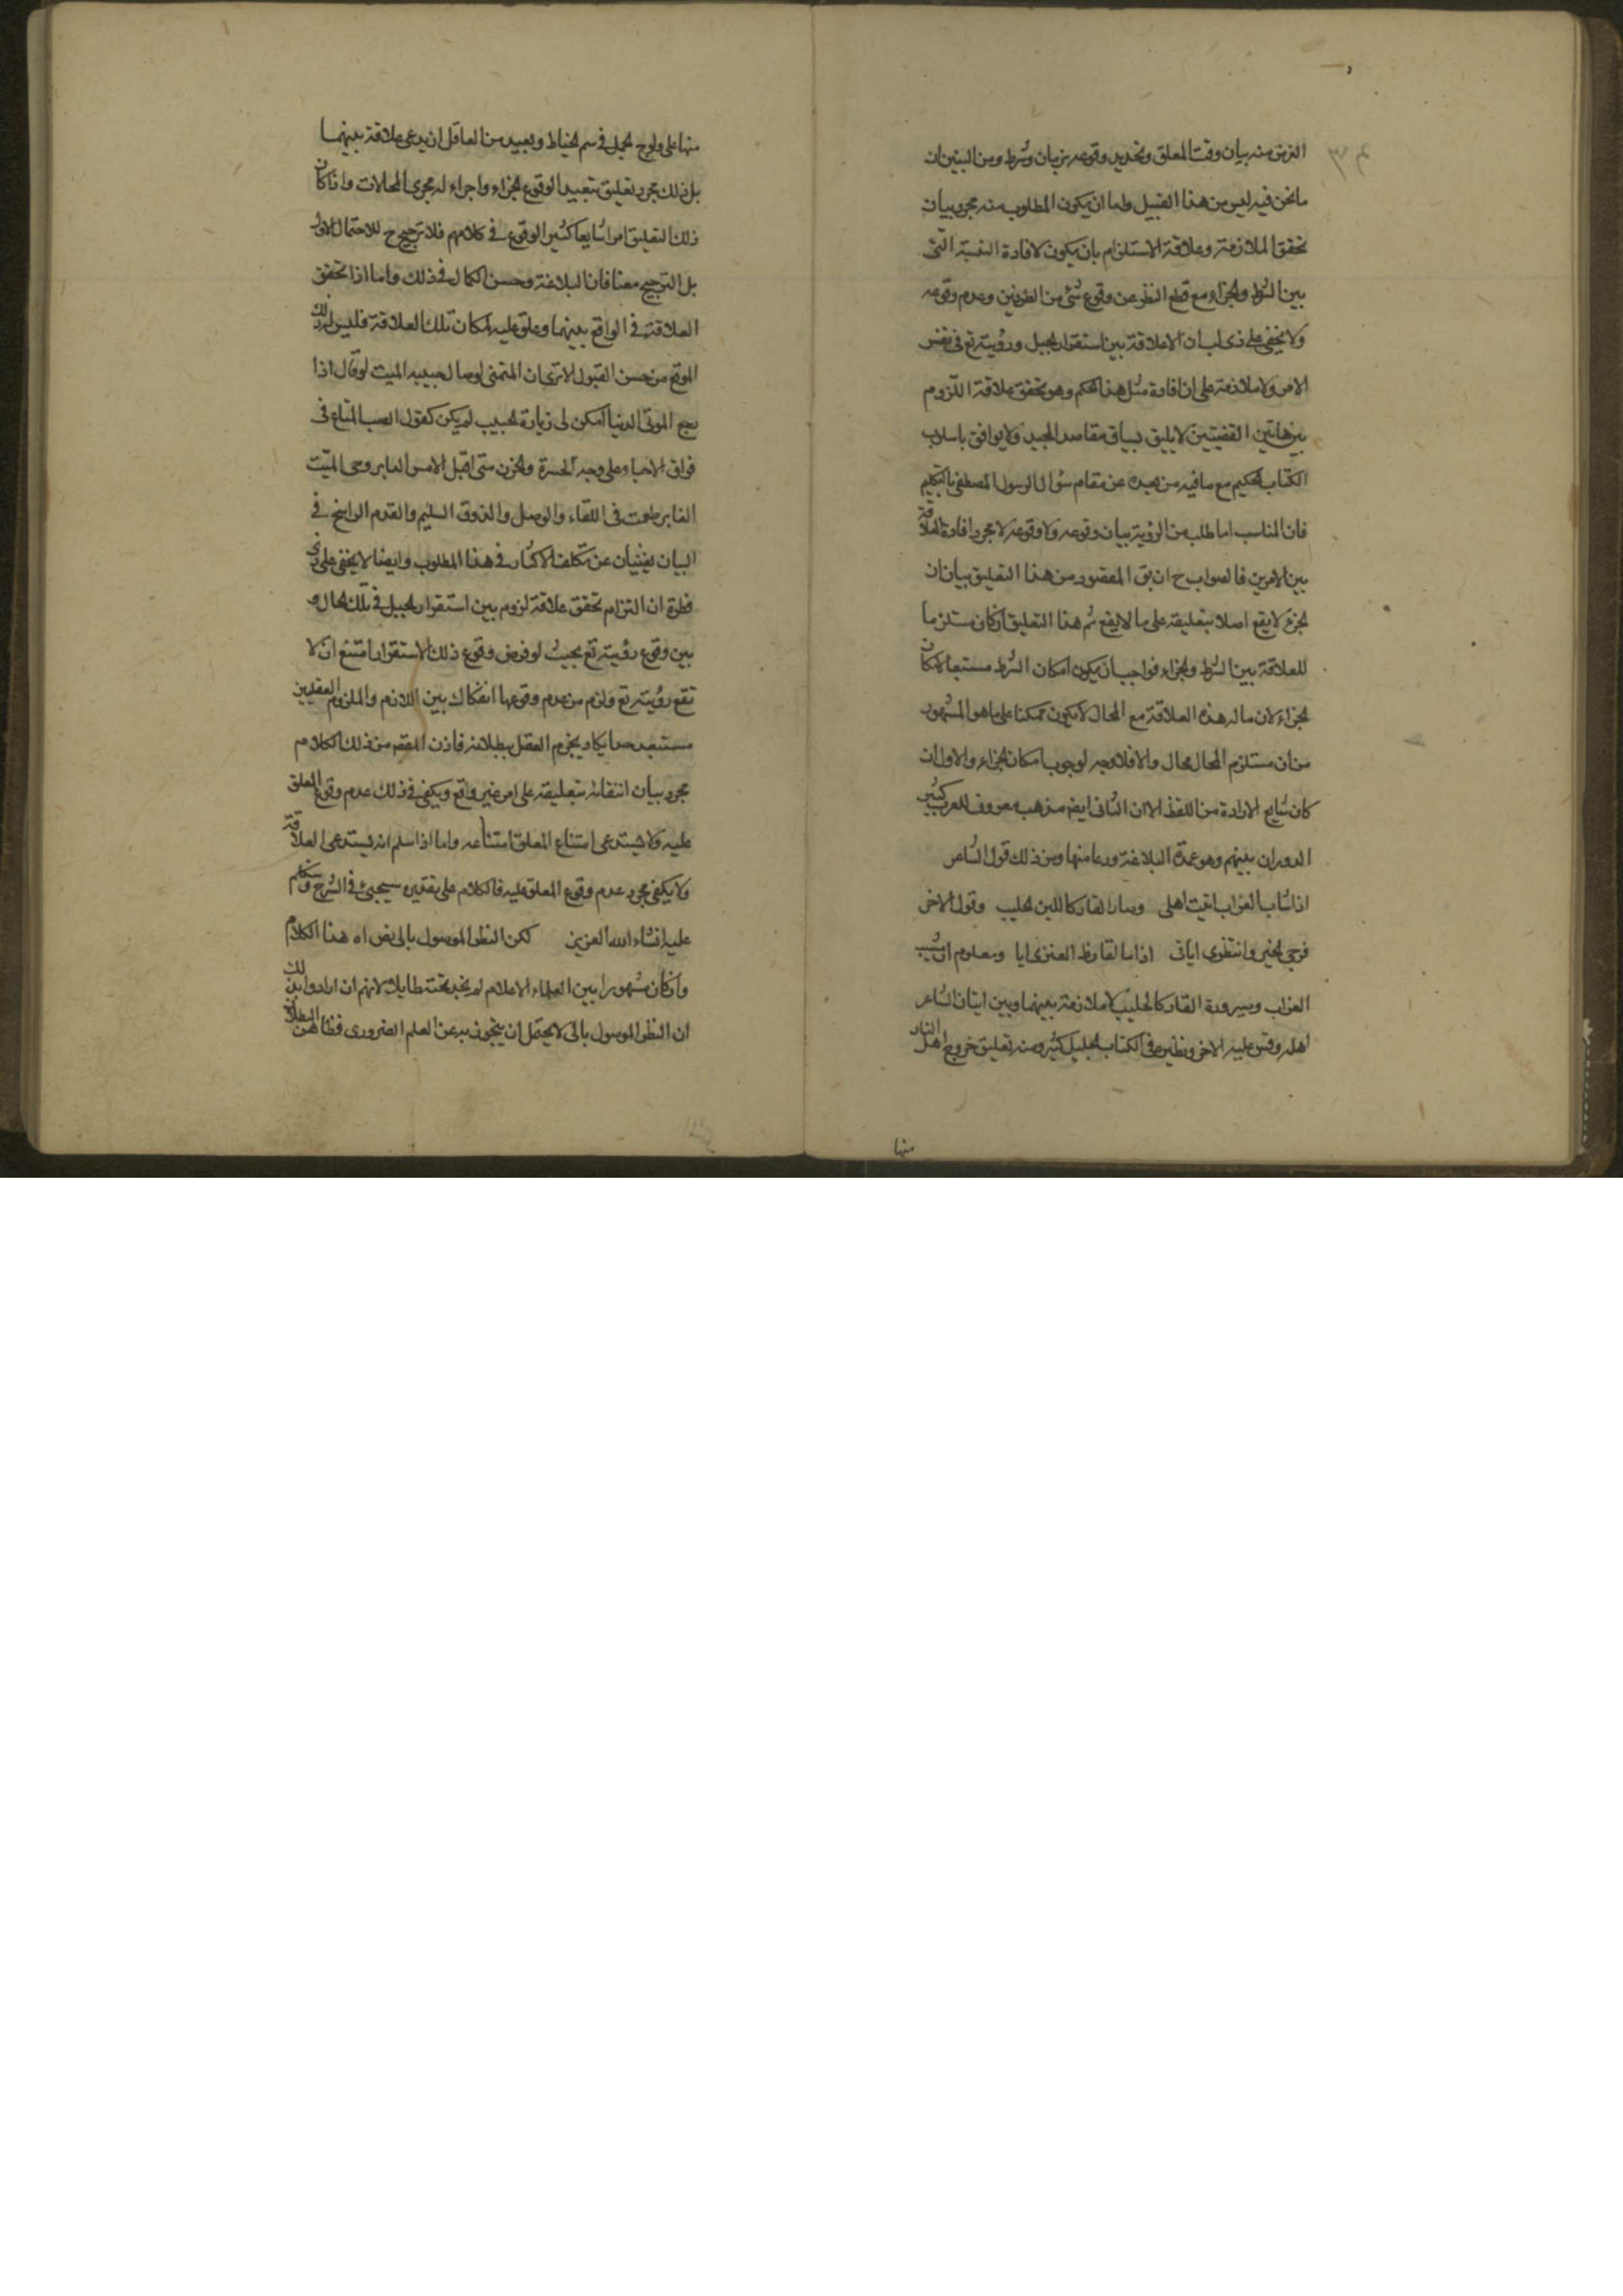 الغرض منه بيان وقت المعلق وتحديد وقوعه بزمان وشرط ومن البين ان
ما نحن فيه ليس من هذا القبيل واما ان يكون المطلوب منه مجرد بيان
تحقق الملازمة وعلاقة الاستلزام بان يكون لافادة النسبة التى
بين الشرط والجزاء مع قطع النظر عن وقوع شئ من الطرفين وعدم وقوعه
ولا يخفى على ذى لب ان لا علاقة بين استقرار الجبل ورؤيته تع فى نفس
الامر ولا ملازمة على ان افادة مثل هذا الحكم وهو تحقق علاقة اللزوم
بين هاتين القضيتين لا يليق بسياق مقاصد المجيد ولا يوافق باسلاب
الكتاب الحكيم مع ما فيه من بعده عن مقام سؤال الرسول المصطفى بالتكليم
فان المناسب اما طلب من الرؤية بيان وقوعه ولا وقوعه لا مجرد افادة العلاقة
بين الامرين فالصواب ح ان يق المقصود من هذا التعليق بيان ان
الجزء لا يقع اصلا بتعليقه على ما لا يقع ثم هذا التعليق ان كان مستلزما
للعلاقة بين الشرط والجزاء فواجب ان يكون امكان الشرط مستتبعا لامكان
الجزاء لان ما له هذه العلاقة مع المحال لا يكون ممكنا على ما هو المشهور
من ان مستلزم المحال محال والا فلا وجه لوجوب امكان الجزاء والاول ان
كان شايع الارادة من اللفظ الا ان الثانى ايض مذهب معروف للعرب كثير
الدوران بينهم وهو عمدة البلاغة ودعامتها ومن ذلك قول الشاعر
اذا شاب الغراب اتيت اهلى وصار القار كاللبن الحليب وقول الاخر
فرجى الخير وانتظرى ايابى اذا ما القارظ العنزى ابا ومعلوم ان شيب
الغراب وصيرورة القار كالحليب لا ملازمة بينهما وبين اتيان الشاعر
اهله وقس عليه الاخر ونظيره فى الكتاب الجليل كثير ومنه تعليق خروج اهل النار
منها
منها على ولوج الجمل فى سم الخياط وبعيد من العاقل ان يدعى علاقة بينهما
بل ذلك مجرد تعليق تبعيدا لوقوع الجزاء واجراء له مجرى المحالات واذا كان
ذلك التعليق امرا شايعا كثير الوقوع فى كلامهم فلا ترجيح ح للاحتمال الاول
بل الترجيح معنا فان البلاغة وحسن الكمال فى ذلك واما اذا تحقق
العلاقة فى الواقع بينهما وعلق عليه امكان تلك العلاقة فليس له ذلك
الموقع من حسن القبول الا ترى ان المتمنى لوصال حبيبه الميت لو قال اذا
رجع الموتى الدنيا امكن لى زيارة الحبيب لم يكن كقول الصب المتلع فى
فراق الاحباء على وجه الحسرة والحزن متى اقبل الامس الدابر وحى الميت
الغابر طمعت فى اللقاء والوصل والذوق السليم والقدم الراسخ فى
البيان يغنيان عن تكلف الاكثار فى هذا المطلوب وايضا لا يخفى على ذى
فطرة ان التزام تحقق علاقة لزوم بين استقرار الجبل فى تلك الحال و
بين وقوع رؤيته تع بحيث لو فرض وقوع ذلك الاستقرار امتنع ان لا
تقع رؤيته تع ولزم من عدم وقوعها انفكاك بين اللازم والملزوم العقليين
مستبعد جدا يكاد يجزم العقل ببطلانه فاذن المقصود من ذلك الكلام
مجرد بيان انتفائه بتعليقه على امر غير واقع ويكفى فى ذلك عدم وقوع المعلق
عليه ولا يستدعى امتناع المعلق امتناعه واما اذا سلم انه يستدعى العلاقة
ولا يكفى مجرد عدم وقوع المعلق عليه فالكلام على تقديره سيجئ فى الشرح وسنتكلم
عليه انشاء الله العزيز لكن النظر الموصول بالى نص اه هذا الكلام
وان كان مشهورا بين العلماء الاعلام لم نجد تحته طايلا لانهم ان ارادوا بذلك
ان النظر الموصول بالى لا يحتمل ان يتجوز به عن العلم الضرورى فظاهر البطلان